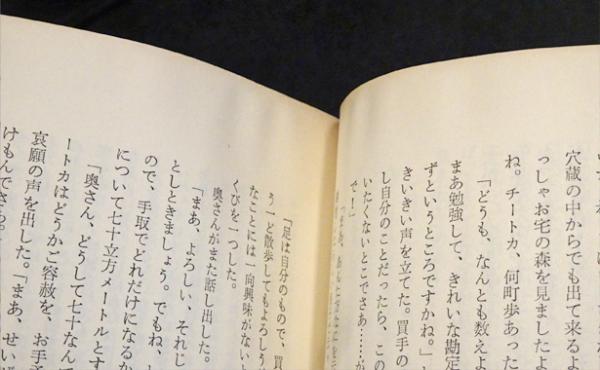 穴蔵の中からでも出て来るよ
っしゃお宅の森を見ましたよ
ね。チートカ、何町歩あった
「どうも、なんとも数えよ
まあ勉強して、きれいな勘定
ずというところですかね。」
きいきい声を立てた。買手の
し自分のことだったら、この
いたくないとこでさあ……が
で！」
「足は自分のもので、買
う一ど散歩してもよろしうが
なことには一向興味がないと
くびを一つした。
奥さんがまた話し出した。
「まあ、よろしい、それじ
としときましょう。でもね、
ので、手取でどれだけになるか
について七十立方メートルとす
「奥さん、どうして七十なんて
ートカはどうかご容赦を、お手
哀願の声を出した。「まあ、せいぜ